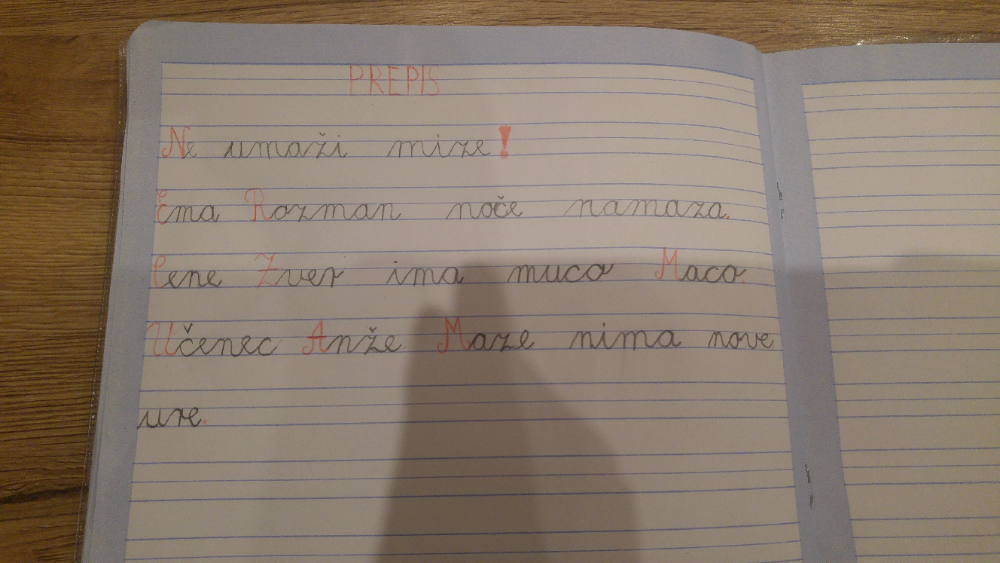 PREPIS
Ne umaži mize!
Ema Rozman noče namaza.
Cene Zver ima muco Maco.
Učenec Anže Maze nima nove
ure.